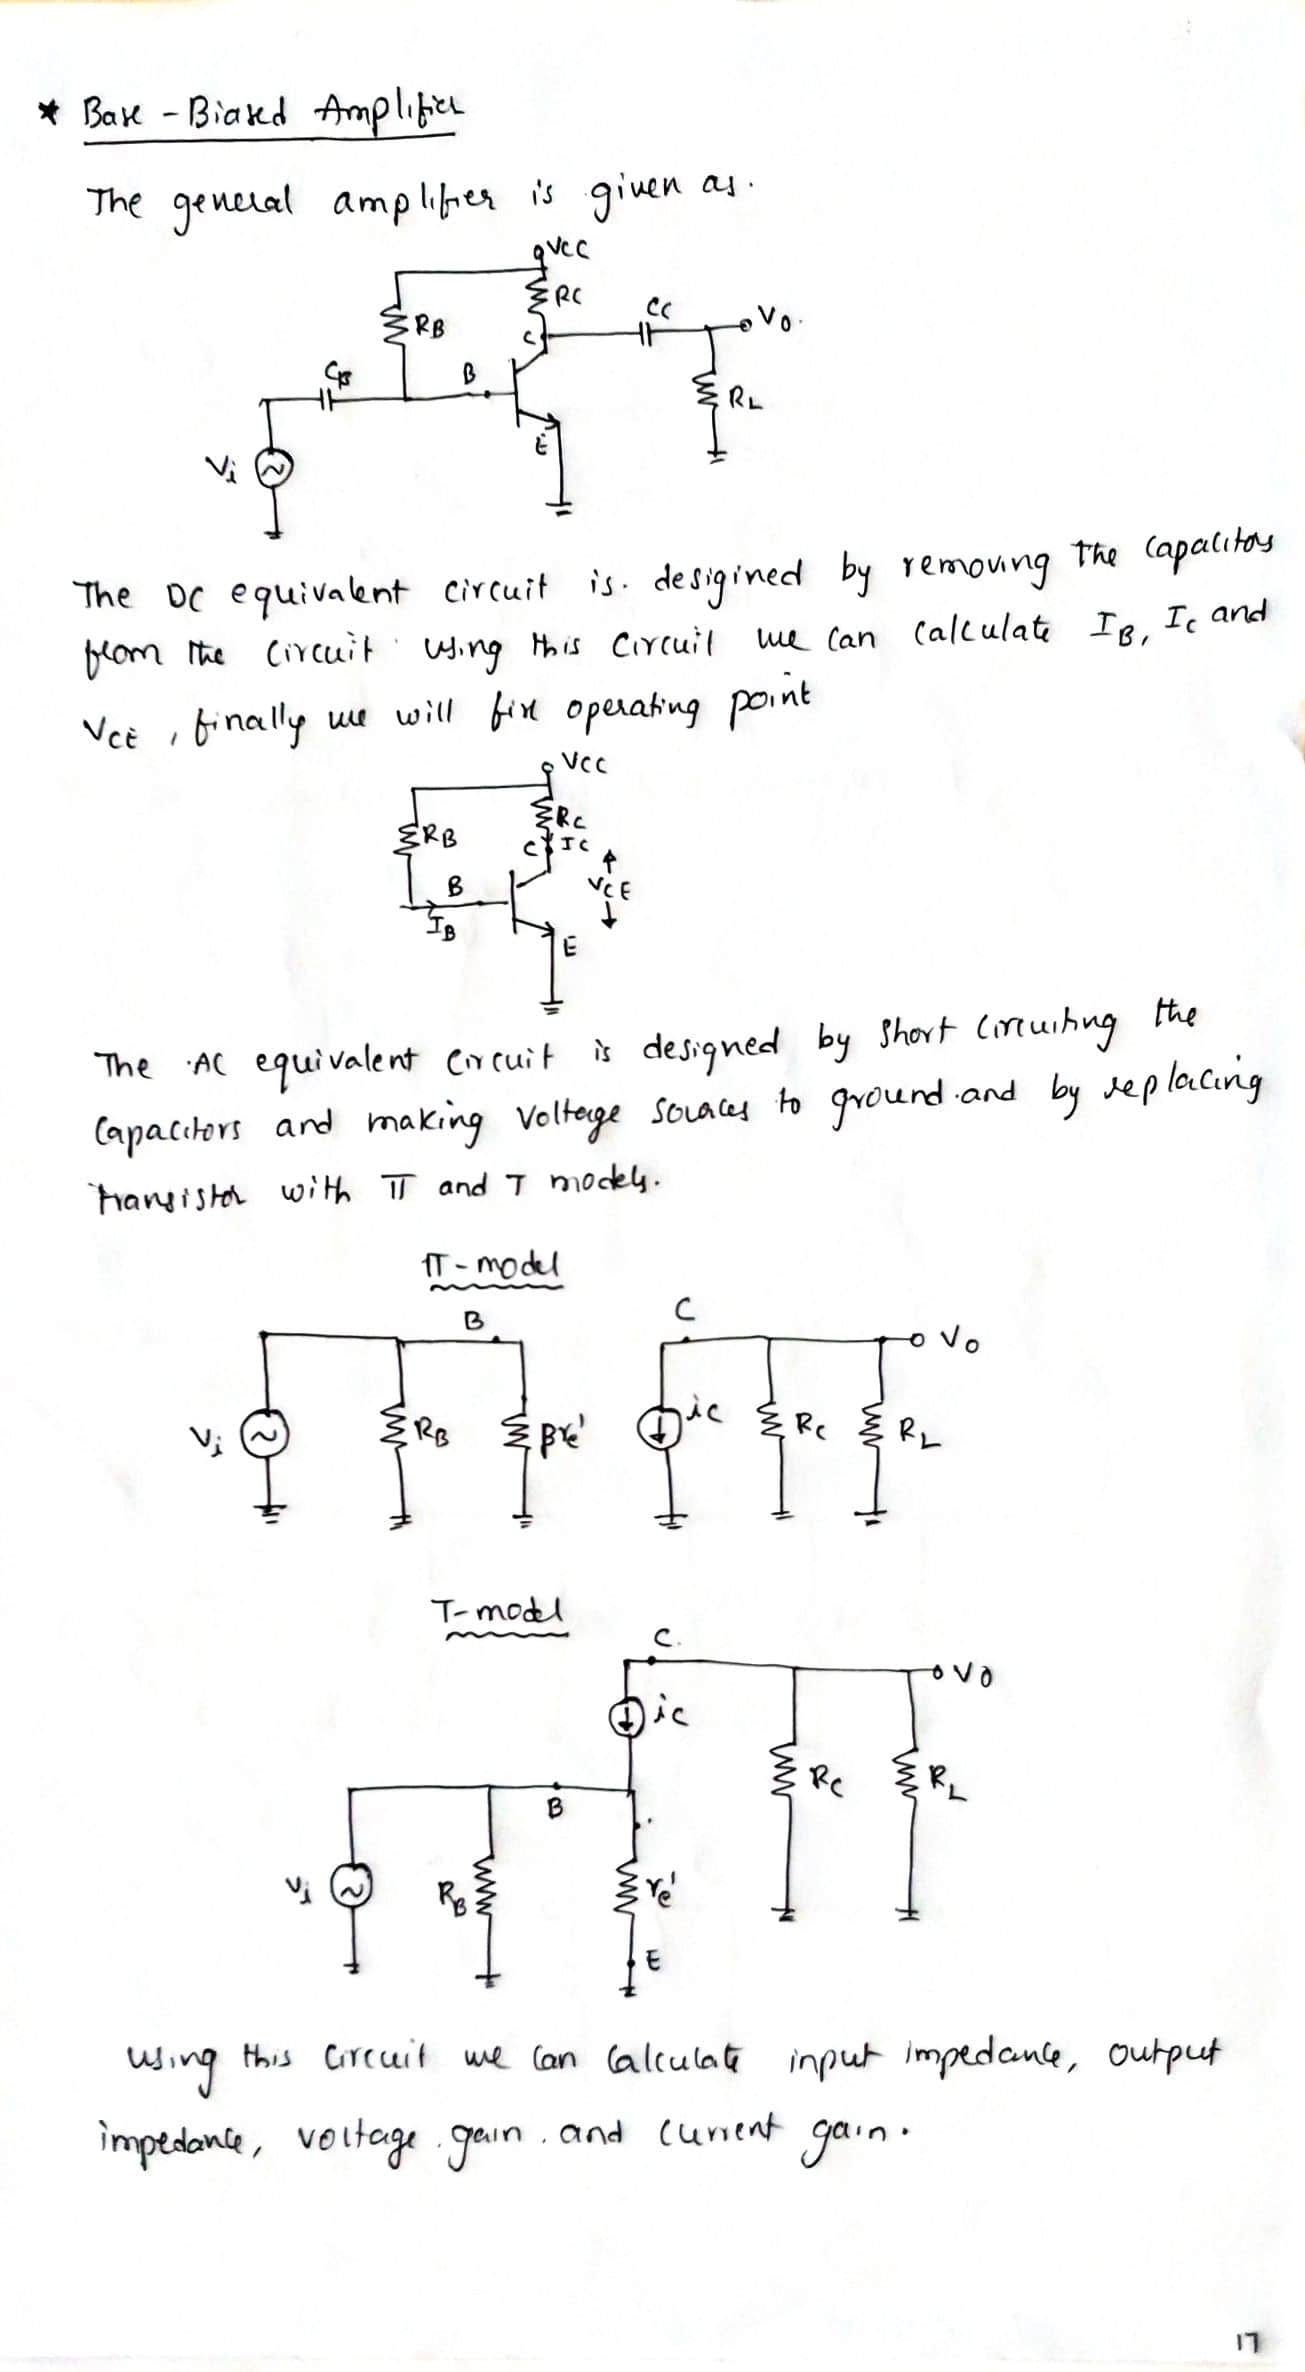 * Base - Biased Amplifier
The general amplifier is given as.
VCC
RC
CC
Vo.
RB
C
CB
B
RL
E
Vi
The DC equivalent circuit is. desigined by removing the capacitors
from the circuit using this circuit we can calculate IB, Ic and
VCE, finally we will fix operating point
VCC
RC
RB
C IC
B
VCE
IB
E
The AC equivalent circuit is designed by short circuiting the
capacitors and making voltage sources to ground and by replacing
transistor with π and T models.
π - model
B
C
Vo
Vi
RB
βre'
ic
Rc
RL
T- model
C.
Vo
ic
Rc
RL
B
Vi
RB
re'
E
using this circuit we can calculate input impedance, output
impedance, voltage gain. and current gain.
17